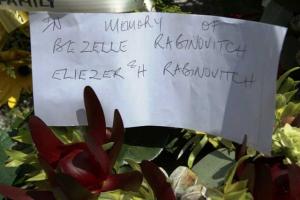 FAMILY
IN MEMORY OF
BEZELLE RABINOVITCH
ELIEZER & H RABINOVITCH